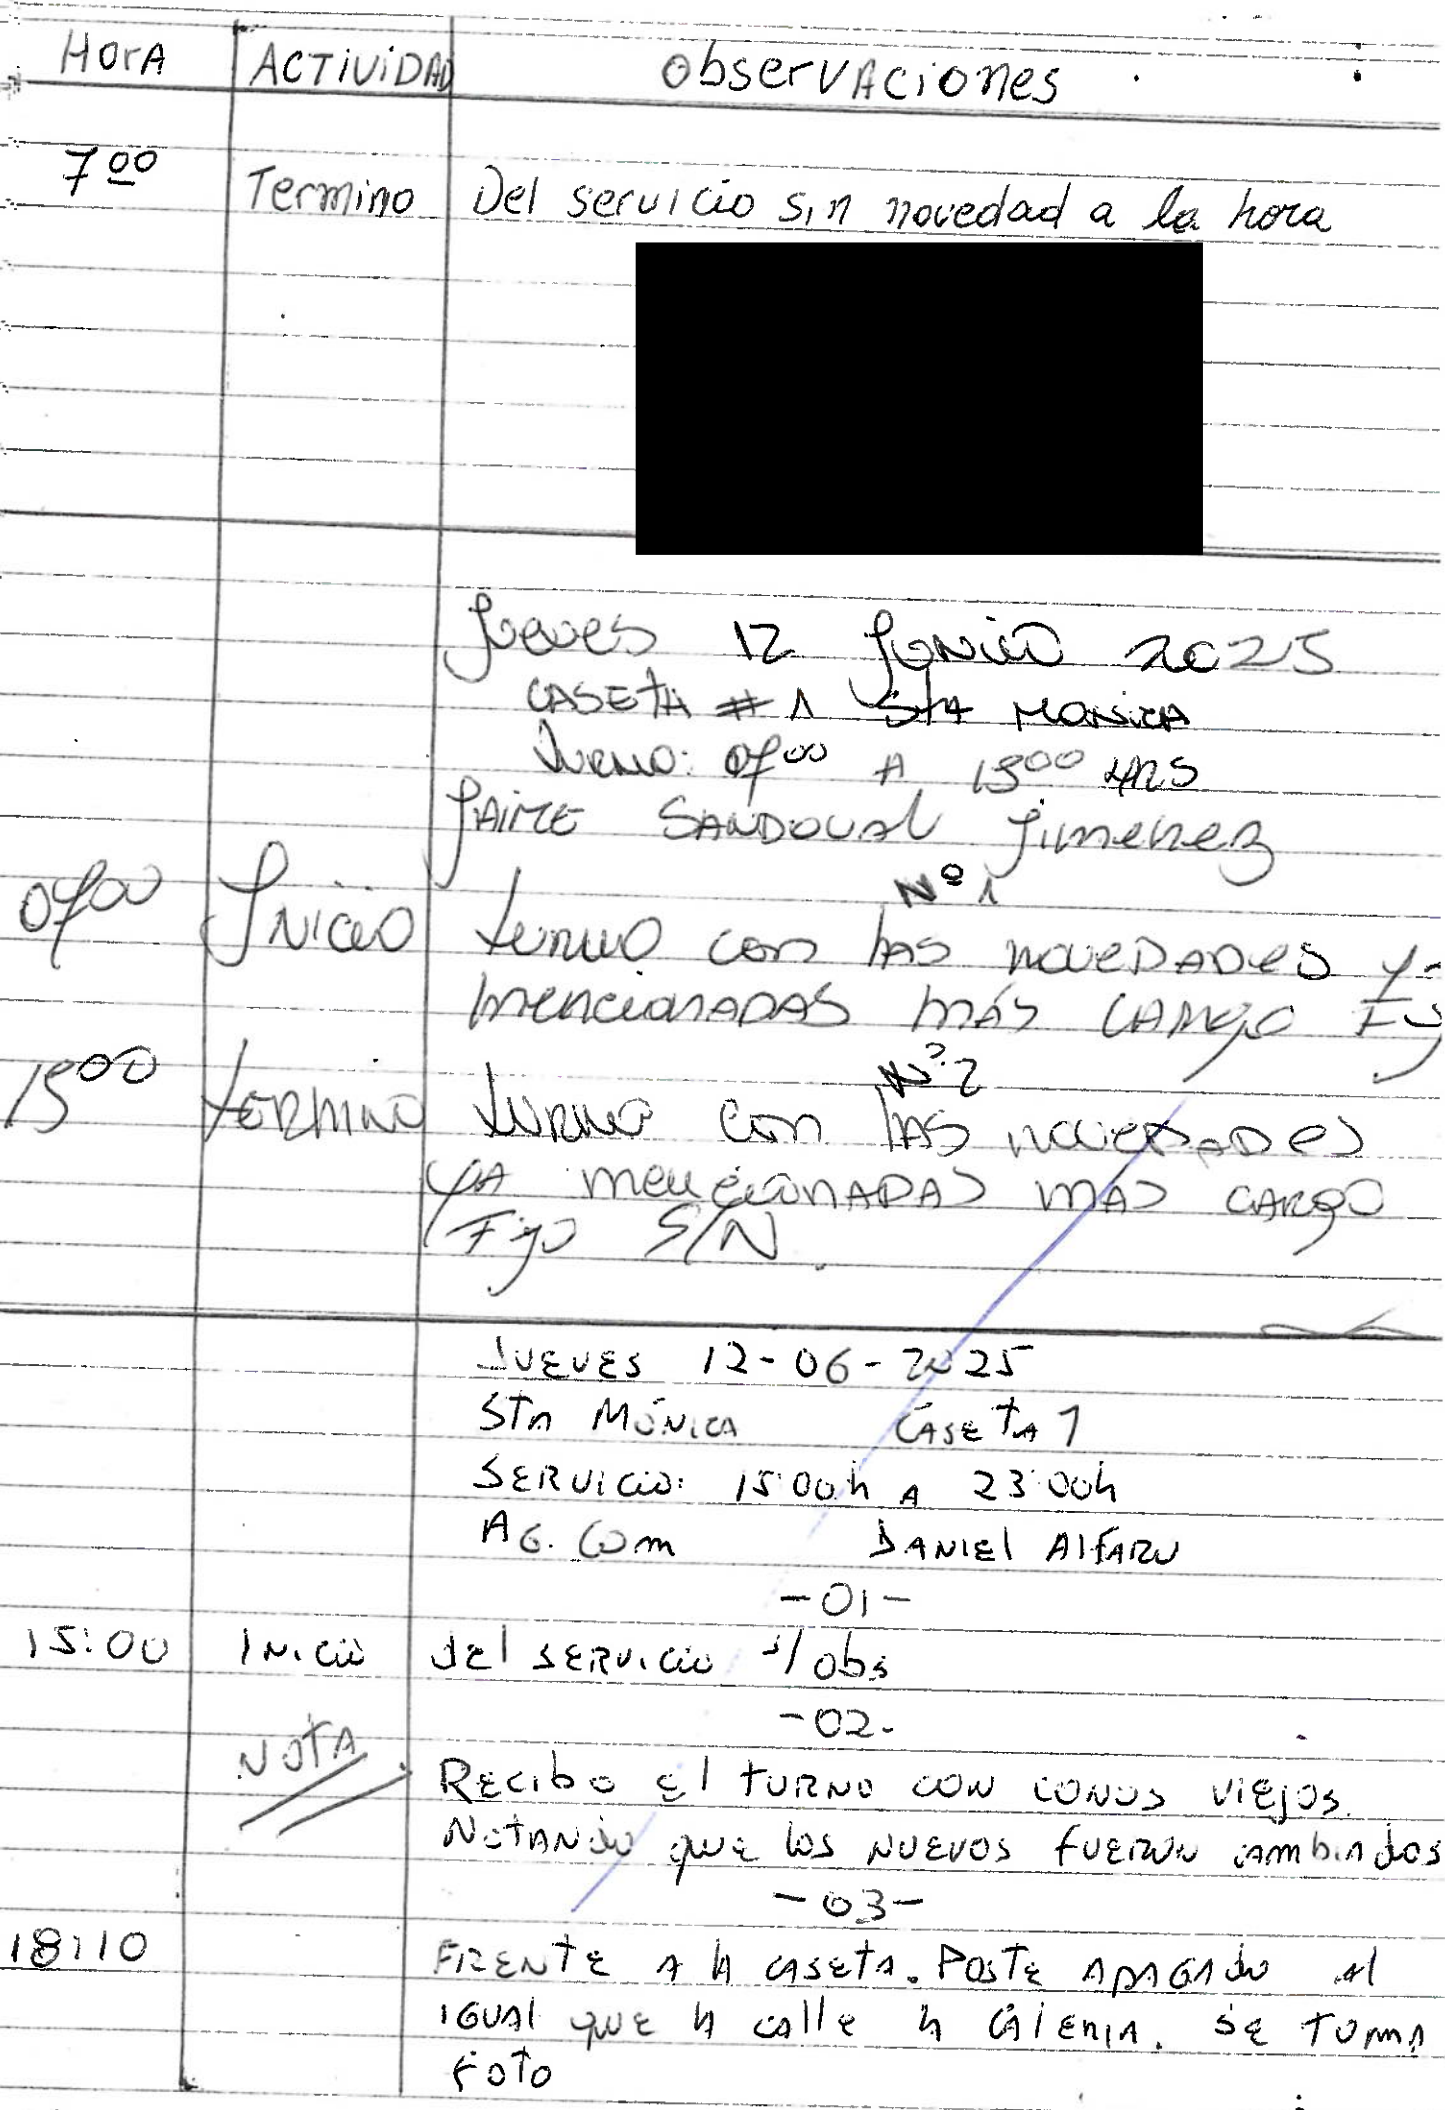 HorA ACTiViDAD ObserVACiones
7 00 Termino Del servicio sin novedad a la hora
Jueves 12 Junio 2025
CASETA # 1 StA MONicA
Turno: 0700 A 1500 HRS
JAiME SANDOVAL Jimenez
Nº 1
0700 INicio turno con las novedades Y-
mencionadas más CARgo Fij
Nº 2
1500 termino turno con las novedades
YA mencionadas mas CARgo
Fijo S/N.
JUEVES 12-06-2025
STA MÓNICA CASETA 1
SERVICIO: 15:00h A 23:00h
AG. Com DANIEL AlfARO
-01-
15:00 INicio del SERVICIO s/obs
-02-
NOTA RECibo El TURNO CON CONOS VIEJOS.
NOTANDO que los NUEVOS FUERON CAMbiAdos
-03-
18:10 FRENTE A lA CASETA. POSTE APAGAdo Al
IGUAl que lA CAlle lA GAlERIA. SE TOMA
FOTO